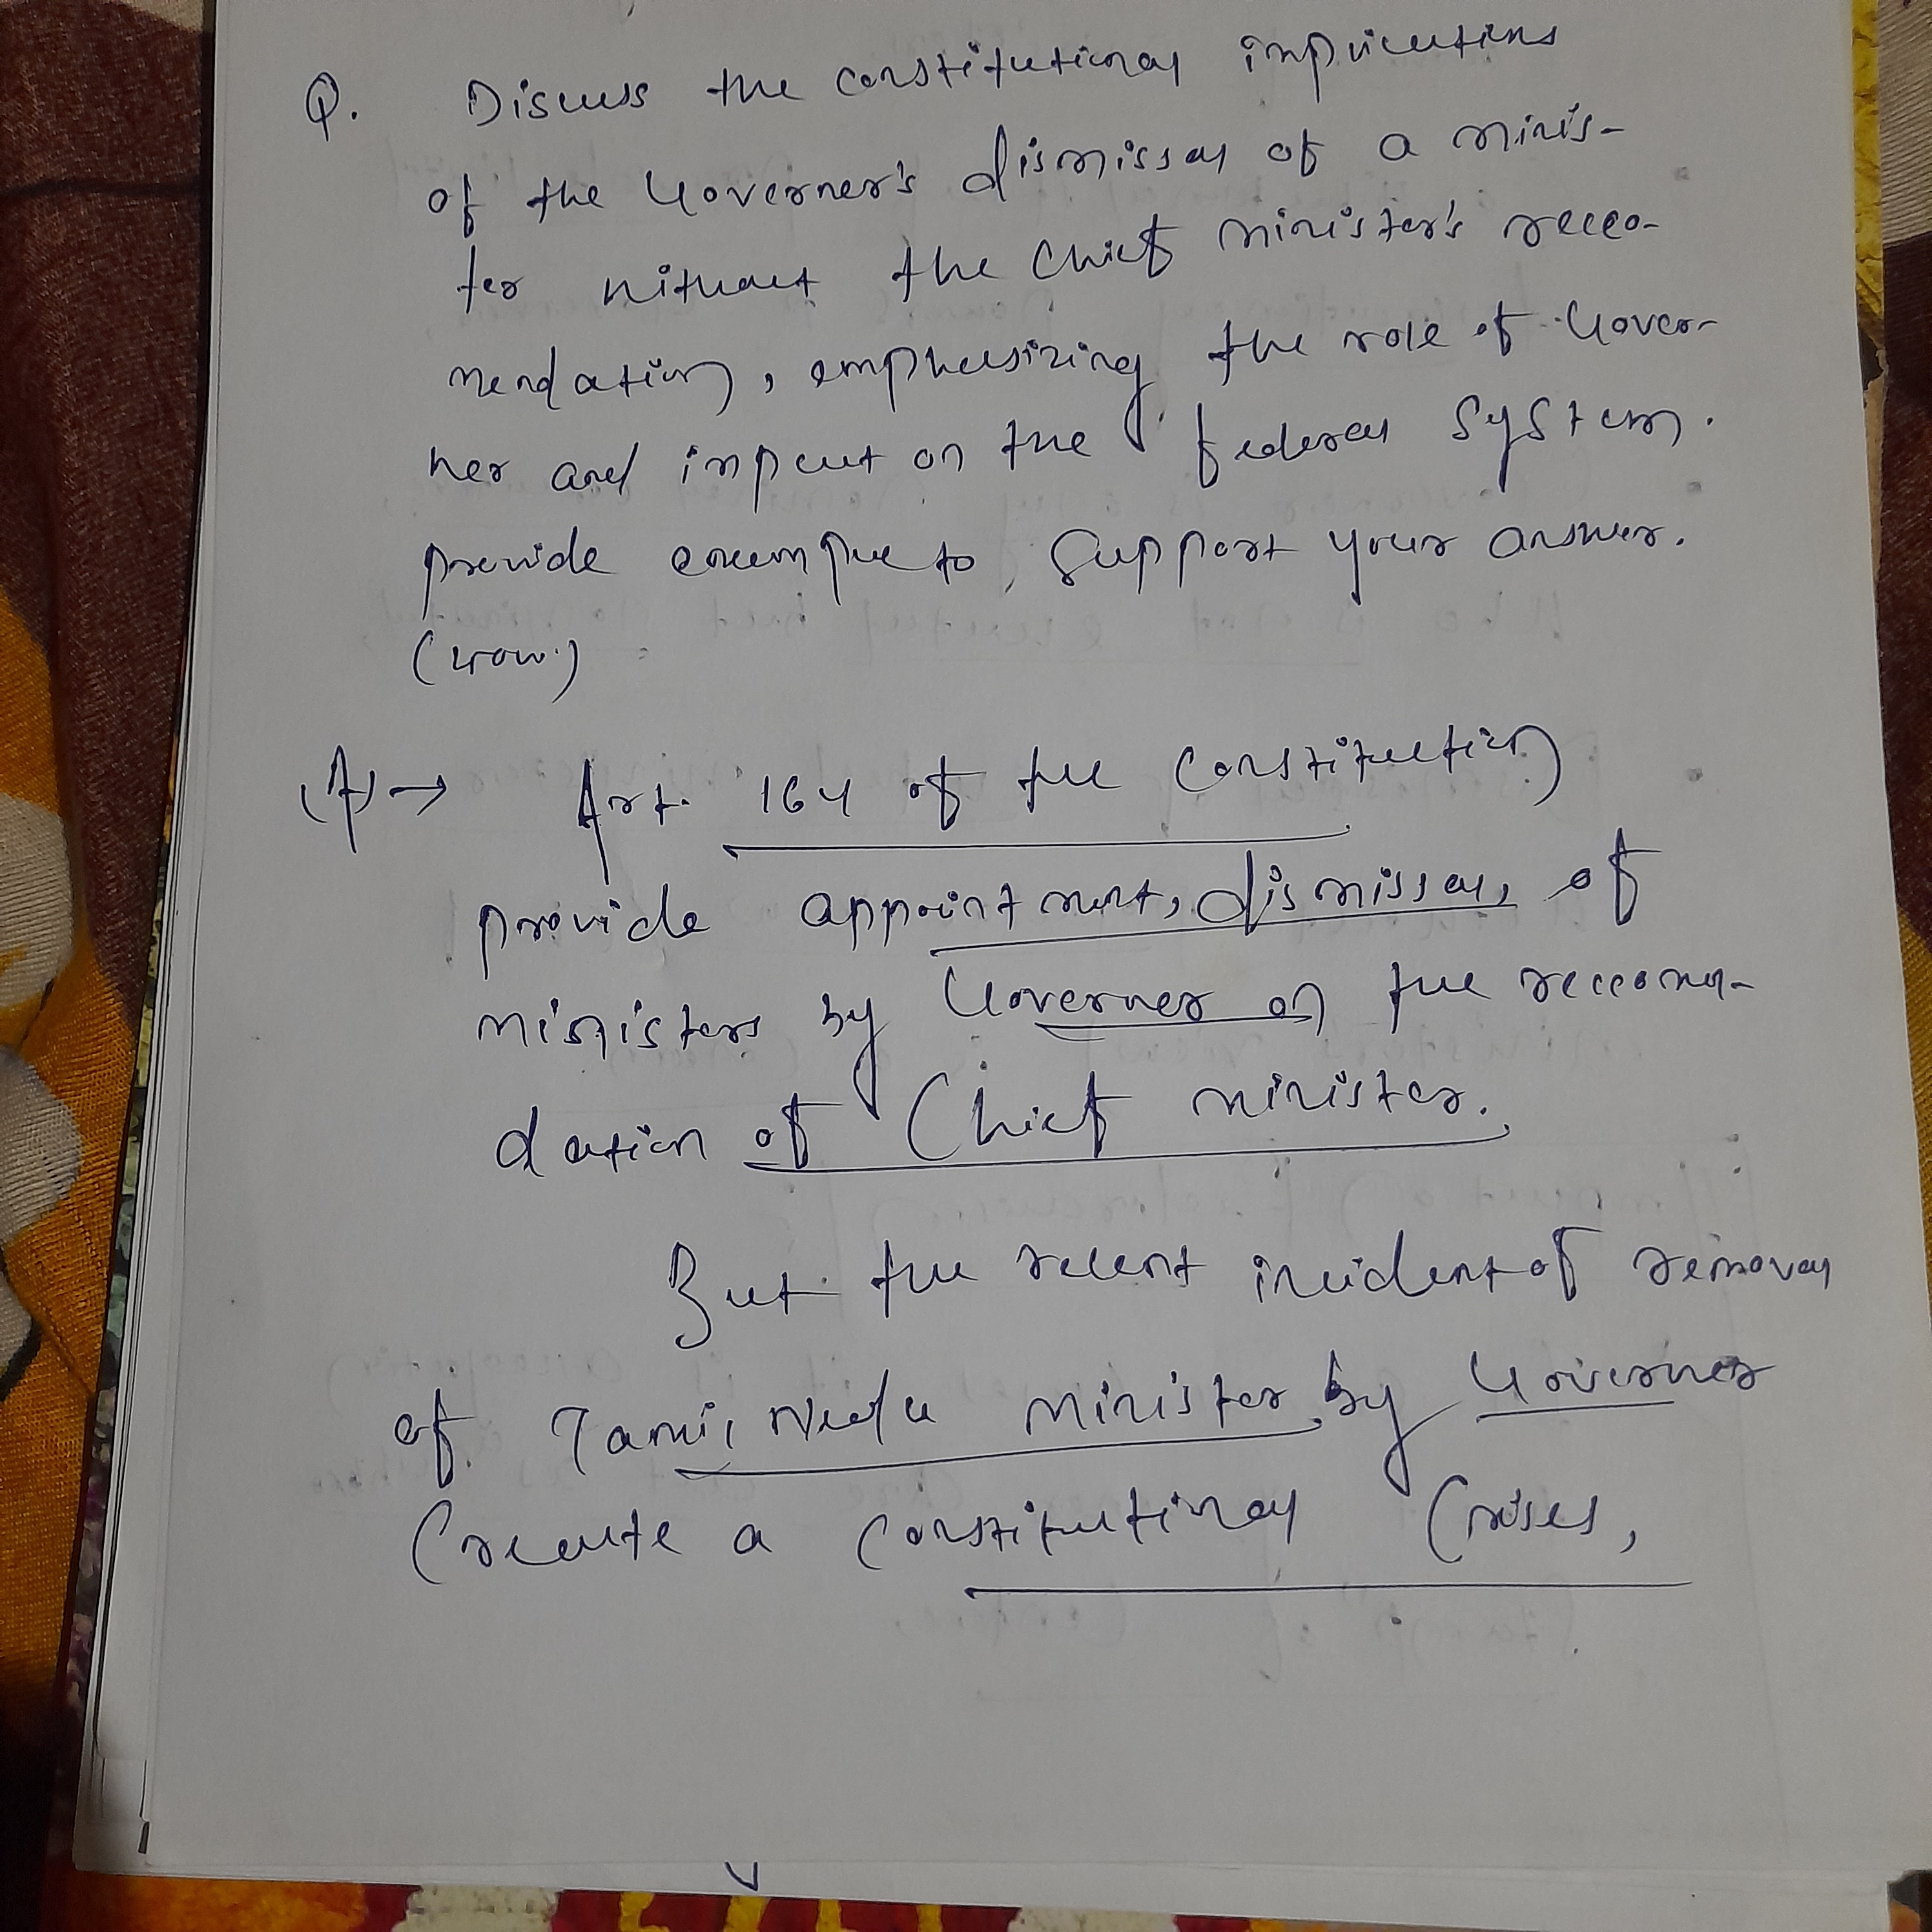 Q. Discuss the constitutional implications
of the Governer's dismissal of a minis-
ter without the Chief minister's recco-
mendation, emphasizing the role of Gover-
ner and impact on the federal system.
provide example to support your answer.
(A) → Art. 164 of the Constitution
provide appointment, dismissal, of
ministers by Governer on the reccomen-
dation of Chief minister.
But the recent incident of removal
of Tamil Nadu minister by Governer
Create a constitutional Crises,